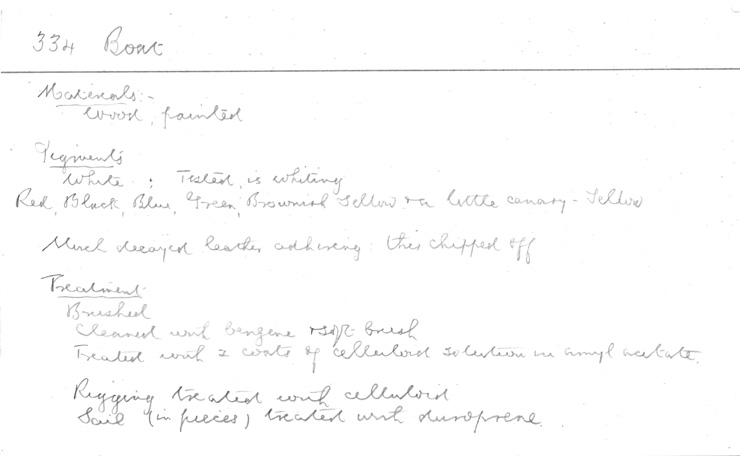 334 Boat
Materials:-
Wood, painted
Pigments
White : Tested, is whiting
Red, Black, Blue, Green, Brownish Yellow & a little canary-Yellow
Much decayed leather adhering: this chipped off
Treatment
Brushed
Cleaned with benzene & soft brush
Treated with 2 coats of celluloid solution in amyl acetate.
Rigging treated with celluloid
Sail (in pieces) treated with duroprene.